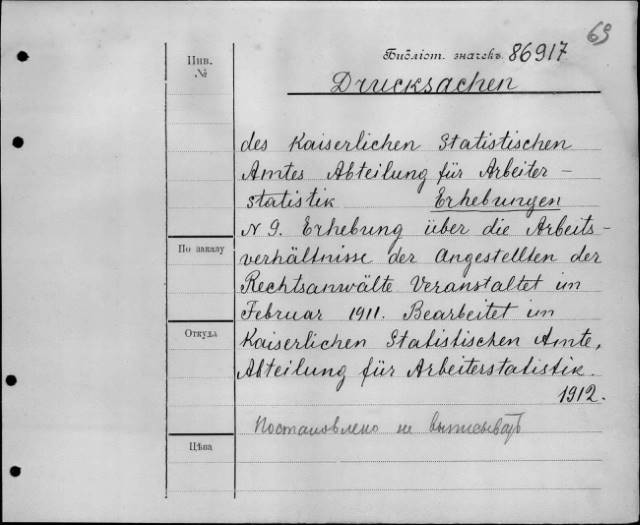 69
Библіот. значекъ. 86917
Инв.
№
Drucksachen
des Kaiserlichen Statistischen
Amtes Abteilung für Arbeiter-
statistik Erhebungen
N 9. Erhebung über die Arbeits-
verhältnisse der Angestellten der
По заказу
Rechtsanwälte Veranstaltet im
Februar 1911. Bearbeitet im
Откуда
Kaiserlichen Statistischen Amte,
Abteilung für Arbeiterstatistik.
1912.
Постановлено не выписывать
Цѣна